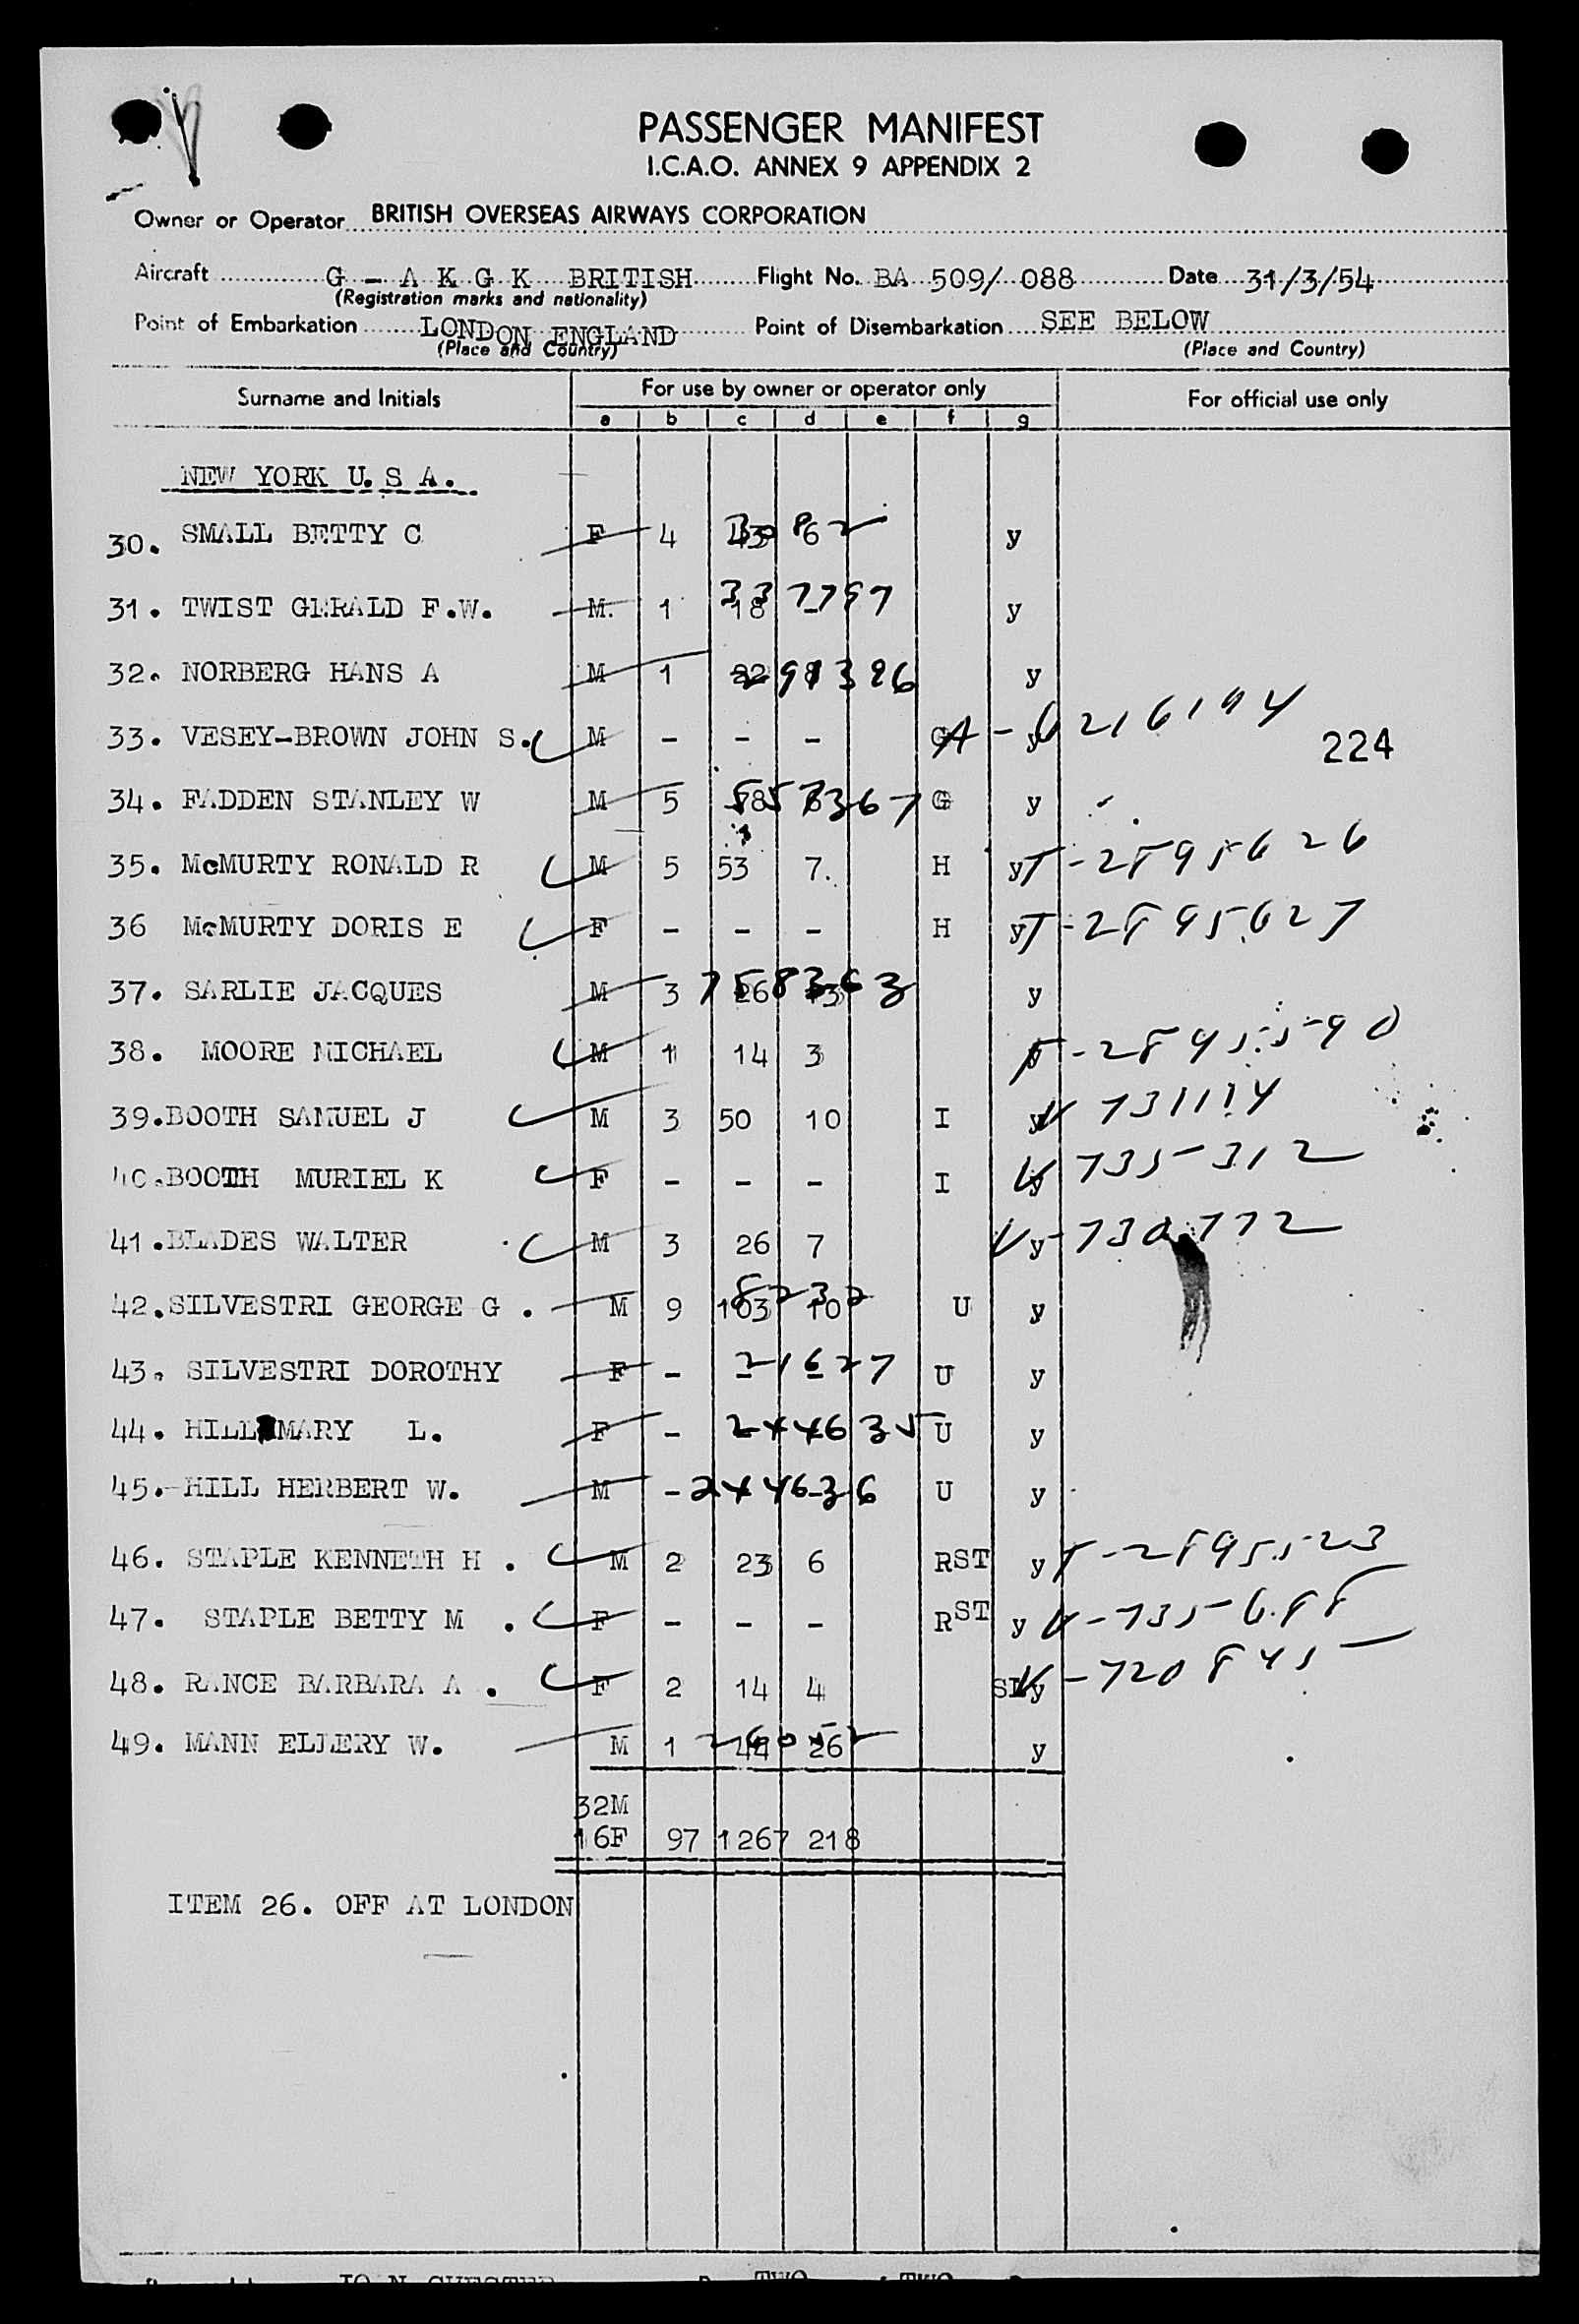 PASSENGER MANIFEST
I.C.A.O. ANNEX 9 APPENDIX 2
Owner or Operator BRITISH OVERSEAS AIRWAYS CORPORATION
Aircraft G - A K G K BRITISH Flight No. BA 509/ 088 Date 31/3/54
(Registration marks and nationality)
Point of Embarkation LONDON ENGLAND Point of Disembarkation SEE BELOW
(Place and Country) (Place and Country)
Surname and Initials For use by owner or operator only For official use only
a b c d e f g
NEW YORK U.S A.
30. SMALL BETTY C F 4 6 y
31. TWIST GERALD F.W. M. 1 18 - 337797 y
32. NORBERG HANS A M 1 y
33. VESEY-BROWN JOHN S. M - - - G y A-6216194
224
34. FADDEN STANLEY W M 5 G y
35. McMURTY RONALD R M 5 53 7. H y T-2895626
36 McMURTY DORIS E F - - - H y T-2895627
37. SARLIE JACQUES M 3 26 13 y
38. MOORE MICHAEL M 1 14 3 T-2895590
39.BOOTH SAMUEL J M 3 50 10 I y V 731114
40.BOOTH MURIEL K F - - - I y V 735312
41.BLADES WALTER M 3 26 7 y V-730772
42.SILVESTRI GEORGE G . M 9 103 10 8232 U y
43. SILVESTRI DOROTHY F - - - 21627 U y
44. HILL MARY L. F - 244635 U y
45. HILL HERBERT W. M - 2446-36 U y
46. STAPLE KENNETH H . M 2 23 6 RST y T-2895523
47. STAPLE BETTY M . F - - - RST y V-735688
48. RANCE BARBARA A . F 2 14 4 y V-720845
49. MANN ELLERY W. M 1 44 26 y
32M
16F 97 1267 218
ITEM 26. OFF AT LONDON